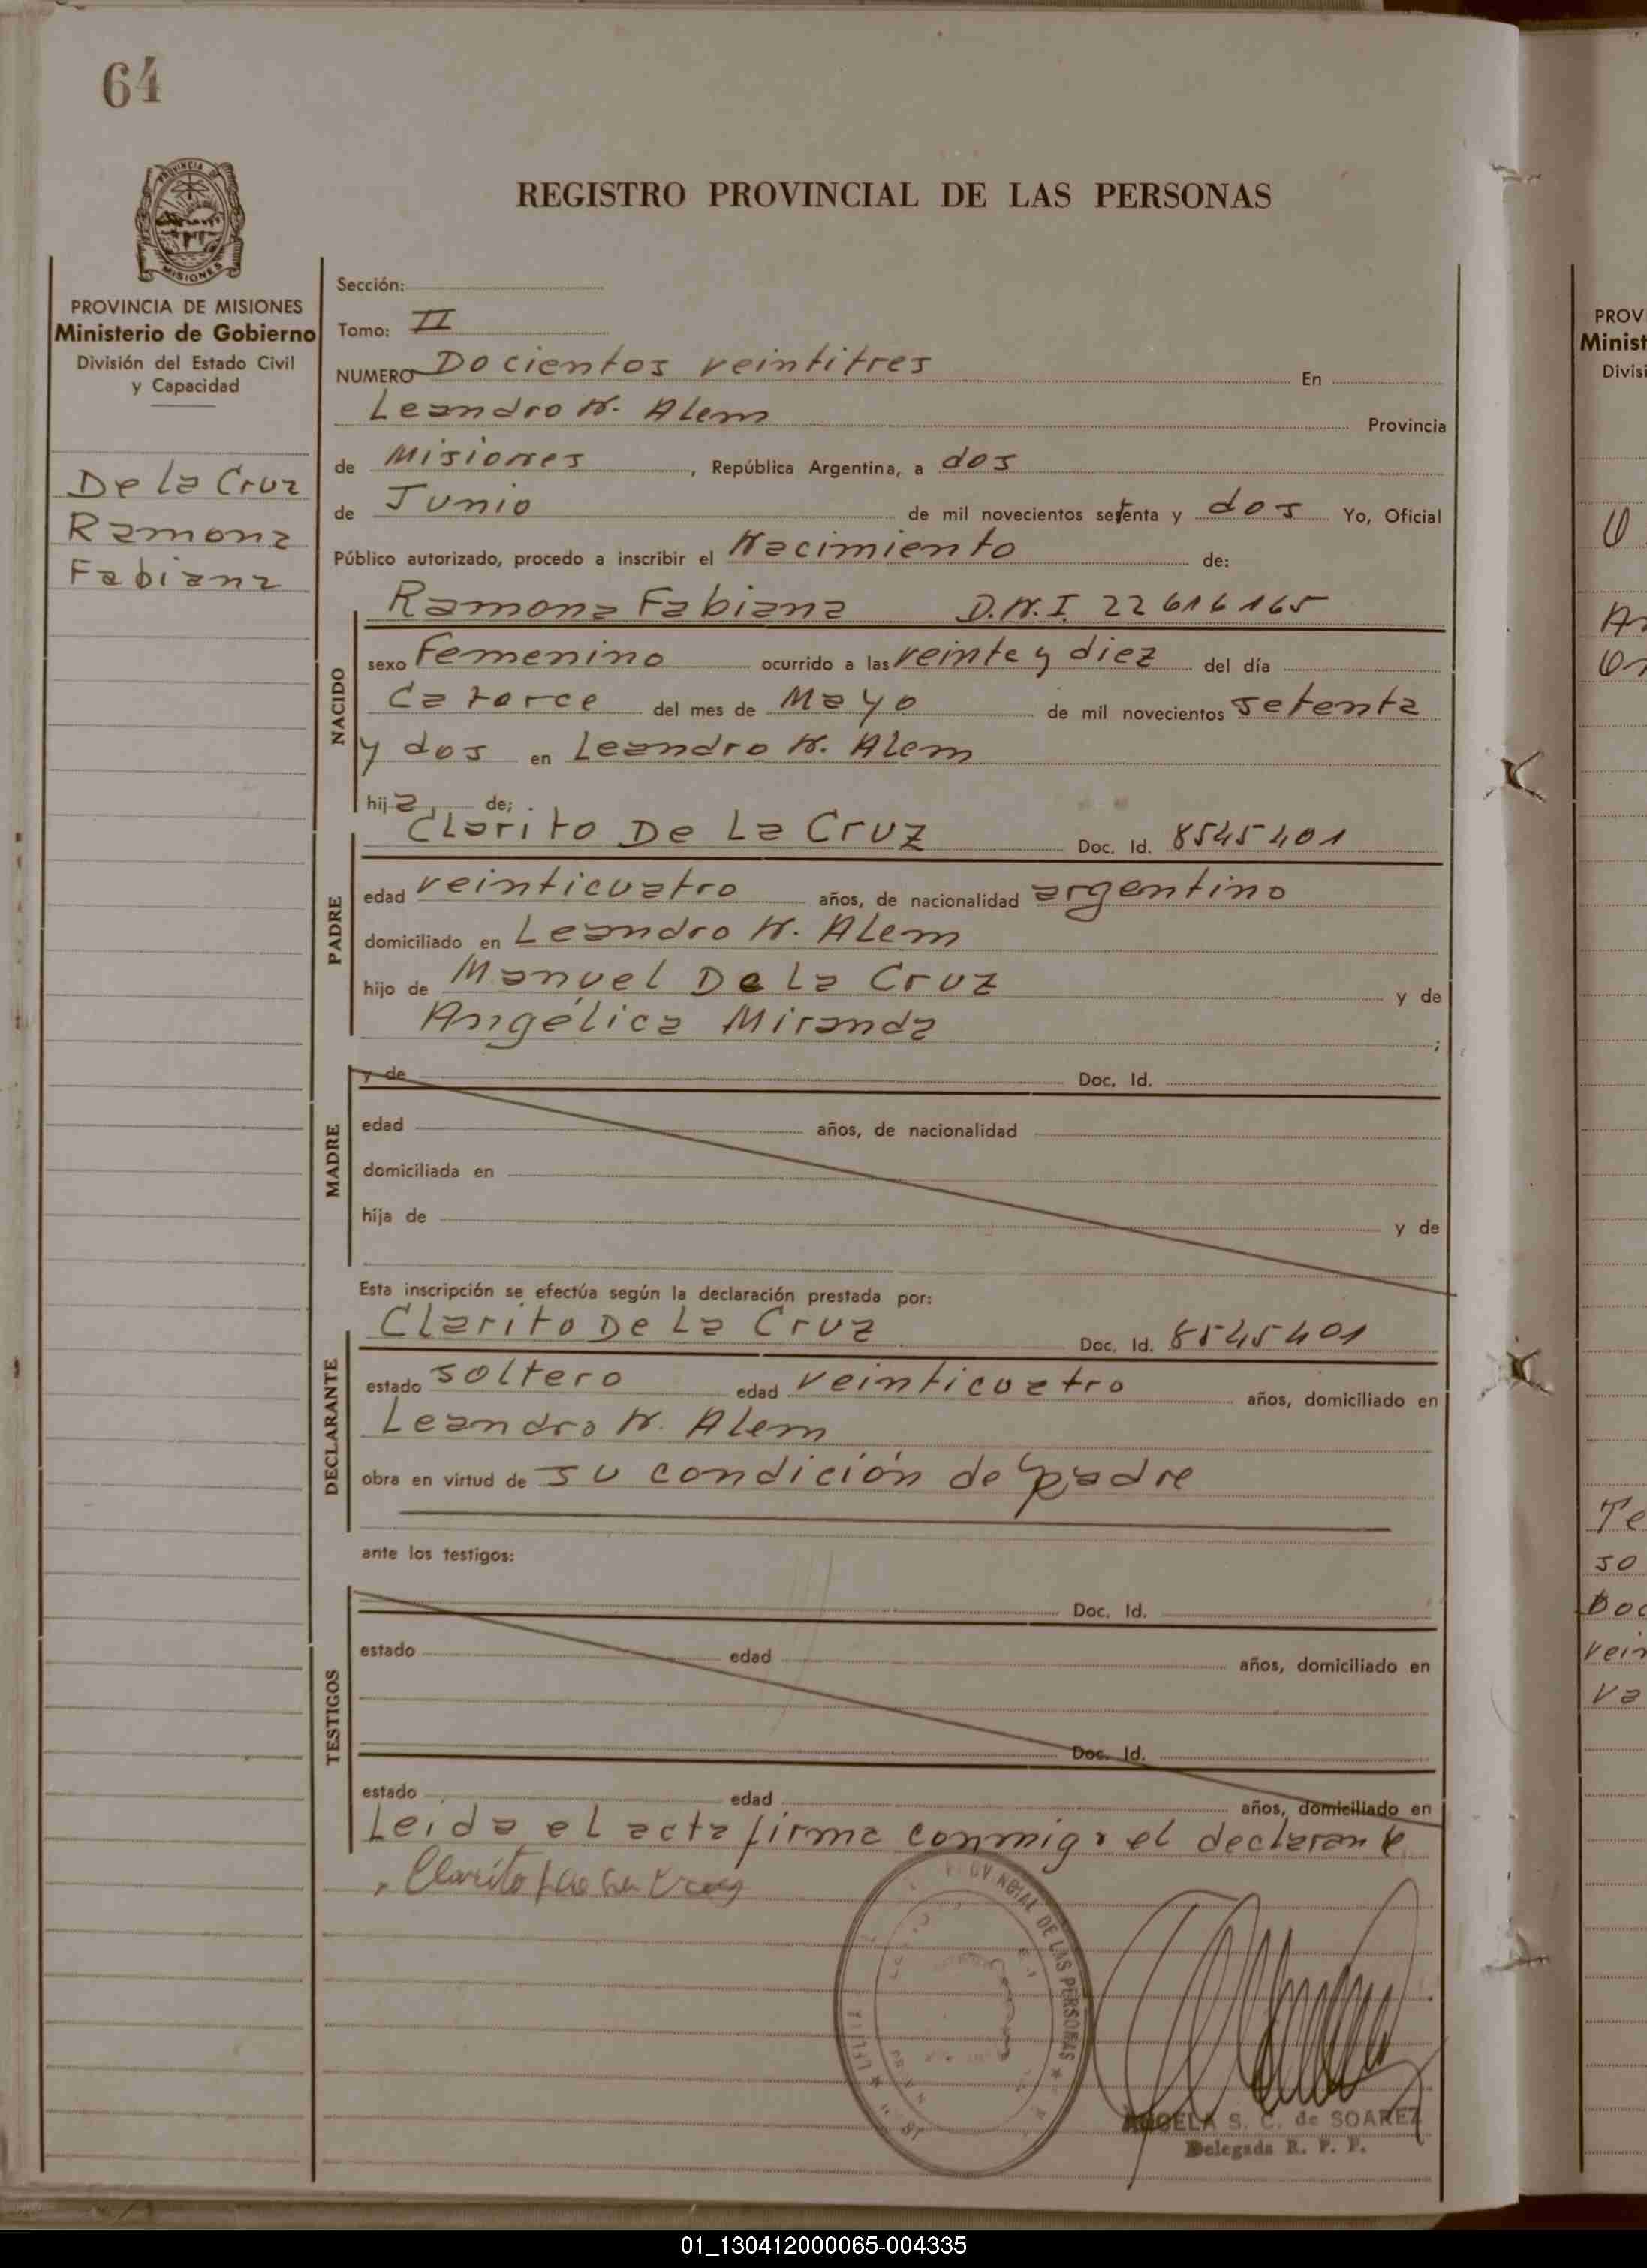 64
PROVINCIA
MISIONES
REGISTRO PROVINCIAL DE LAS PERSONAS
PROVINCIA DE MISIONES
Ministerio de Gobierno
División del Estado Civil
y Capacidad
De la Cruz
Ramona
Fabiana
Sección:
Tomo: II
NUMERO Docientos veintitres En
Leandro N. Alem Provincia
de Misiones, República Argentina, a dos
de Junio de mil novecientos setenta y dos Yo, Oficial
Público autorizado, procedo a inscribir el Nacimiento de:
Ramona Fabiana D.N.I. 22616165
NACIDO
sexo Femenino ocurrido a las veinte y diez del día
Catorce del mes de Mayo de mil novecientos setenta
y dos en Leandro N. Alem
hija de;
Clarito De La Cruz Doc. Id. 8545401
PADRE
edad veinticuatro años, de nacionalidad argentino
domiciliado en Leandro N. Alem
hijo de Manuel De La Cruz y de
Angélica Miranda ;
y de Doc. Id.
MADRE
edad años, de nacionalidad
domiciliada en
hija de y de
Esta inscripción se efectúa según la declaración prestada por:
Clarito De La Cruz Doc. Id. 8545401
DECLARANTE
estado soltero edad veinticuatro años, domiciliado en
Leandro N. Alem
obra en virtud de su condición de padre
ante los testigos:
Doc. Id.
TESTIGOS
estado edad años, domiciliado en
Doc. Id.
estado edad años, domiciliado en
Leida el acta firma conmigo el declarante
Clarito
DE LAS PERSONAS
ANGELA S. C. de SOAREZ
Delegada R. P. P.
PROV
Minist
Divisi
Te
so
Doc
vein
va
01_130412000065-004335